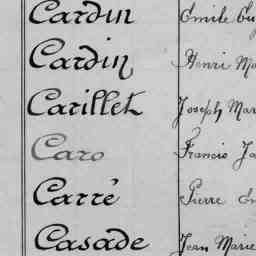 Cardin Emile
Cardin Henri
Carillet Joseph Mar
Caro Francis Ja
Carré Pierre
Casade Jean Marie